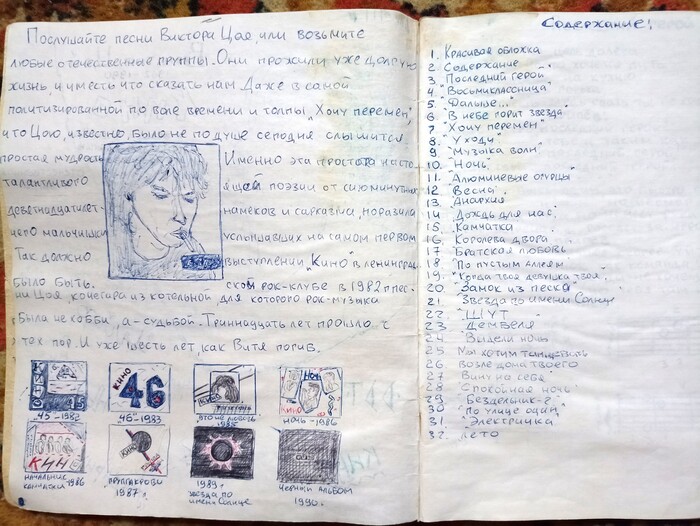 Послушайте песни Виктора Цоя, или возьмите
любые отечественные группы. Они прожили уже долгую
жизнь, и им есть что сказать нам. Даже в самой
политизированной по воле времени и толпы „Хочу перемен",
что Цою, известно, было не по душе сегодня слышится
простая мудрость
талантливого
девятнадцатилет-
него мальчишки
Так должно
было быть.
Именно эта простота насто-
ящей поэзии от сиюминутных
намеков и сарказма, поразила
услышавших на самом первом
выступлении „Кино" в ленинград-
ском рок-клубе в 1982 г. пес-
ни Цоя, кочегара из котельной для которого рок-музыка
была не хобби, а – судьбой. Триннадцать лет прошло с
тех пор. И уже шесть лет, как Витя погиб.
КИНО
46
КИНО
НОЧЬ
КИНО
„45" – 1982
„46" – 1983
"Это не любовь"
1985
Ночь – 1986
КИНО
начальник
камчатки 1986
"Группа крови"
1987 г.
1989 г.
Звезда по
имени Солнце
Черный альбом
1990 г.
Содержание!
1. Красивая обложка
2. Содержание
3. Последний герой"
4. "Восьмиклассница"
5. "Дальше..."
6. "В небе горит звезда"
7. "Хочу перемен"
8. "Уходи"
9. "Музыка волн"
10. "Ночь"
11. "Алюминевые огурцы"
12. "Весна"
13. "Анархия"
14. "Дождь для нас"
15. "Камчатка"
16. "Королева двора"
17. "Братская любовь"
18. "По пустым аллеям"
19. "Когда твоя девушка твоя..
20. "Замок из песка"
21. Звезда по имени Солнце
22. "ШУТ"
23. "Дембеля"
24. "Видели ночь
25. Мы хотим танцевать
26. Возле дома твоего
27. Вину на себя
28. Спокойная ночь
29. "Бездельник-2"
30. "По улице один"
31. "Электричка"
32. лето